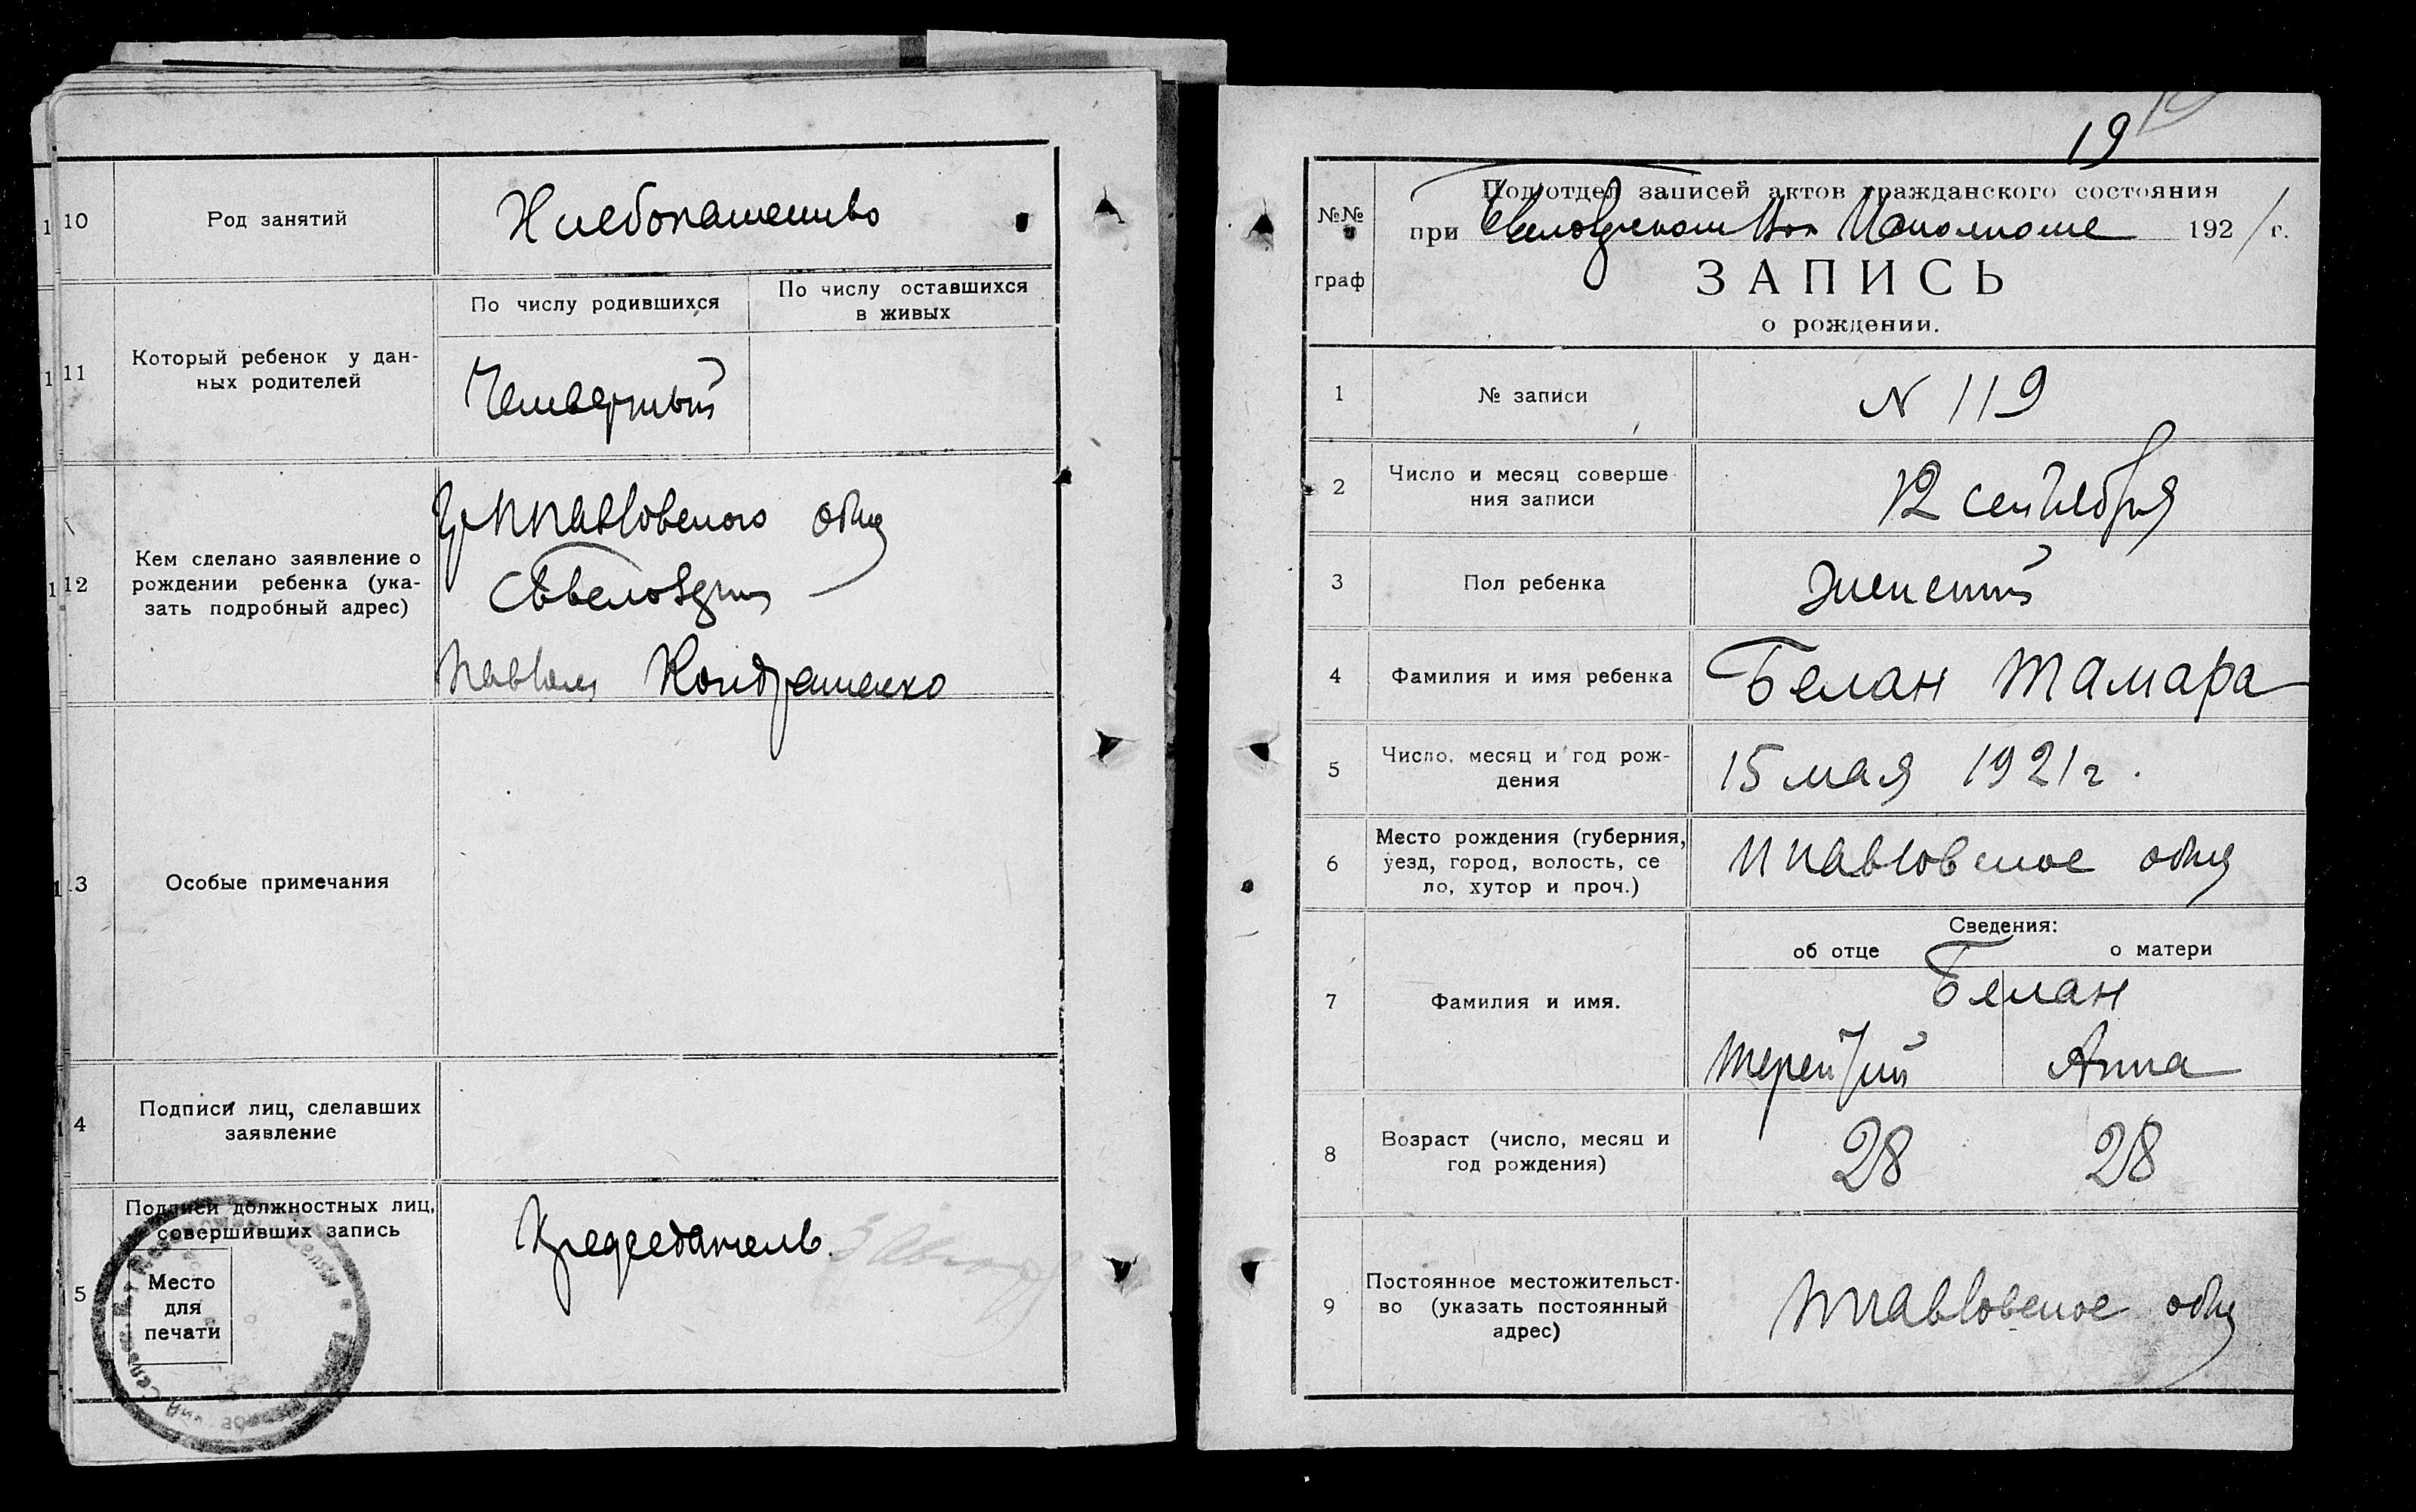 10
Род занятий
Хлебопашество
11
Который ребенок у дан-
ных родителей
По числу родившихся
По числу оставшихся
в живых
Четвертый
12
Кем сделано заявление о
рождении ребенка (ука-
зать подробный адрес)
общ
Кондратенко
3
Особые примечания
4
Подписи лиц, сделавших
заявление
5
Подписи должностных лиц,
совершивших запись
Место
для
печати
Председатель
19
№№
граф
Подотдел записей актов гражданского состояния
при Вол Исполкоме 1921 г.
ЗАПИСЬ
о рождении.
1
№ записи
N 119
2
Число и месяц соверше-
ния записи
12 сентября
3
Пол ребенка
Женский
4
Фамилия и имя ребенка
Белан Тамара
5
Число, месяц и год рож-
дения
15 мая 1921 г.
6
Место рождения (губерния,
уезд, город, волость, се
ло, хутор и проч.)
Ппавловское общ
7
Фамилия и имя.
Сведения:
об отце
о матери
Белан
Терентий
Анна
8
Возраст (число, месяц и
год рождения)
28
28
9
Постоянное местожительст-
во (указать постоянный
адрес)
Ппавловское общ